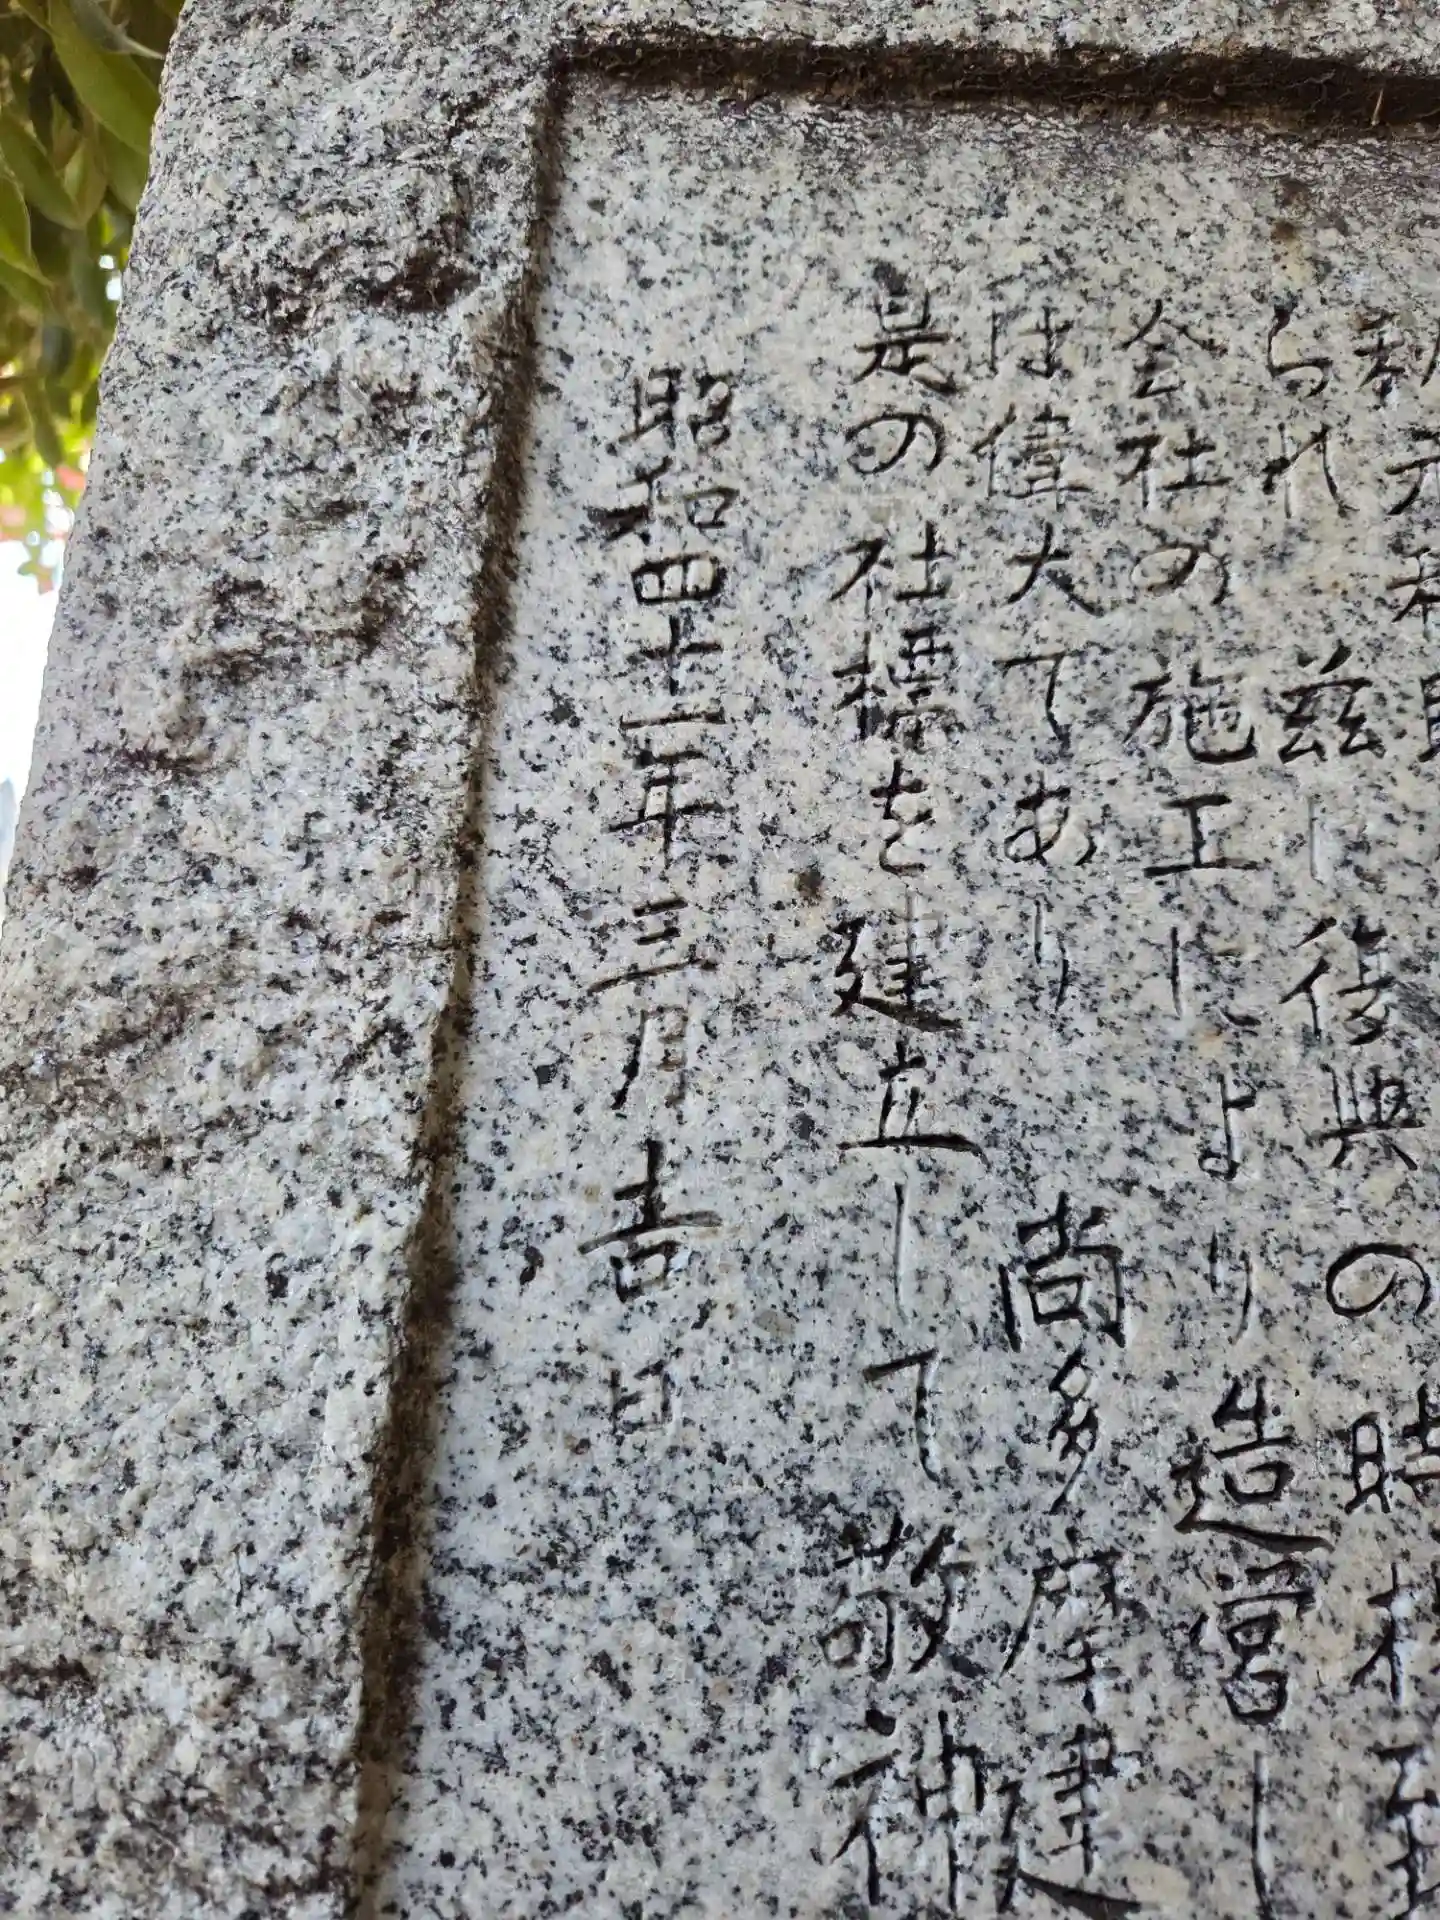 られ 茲に復興の時
会社の施工により造営し
は偉大てあり 尚多摩建
是の社標を建立して敬神
昭和四十二年三月吉日